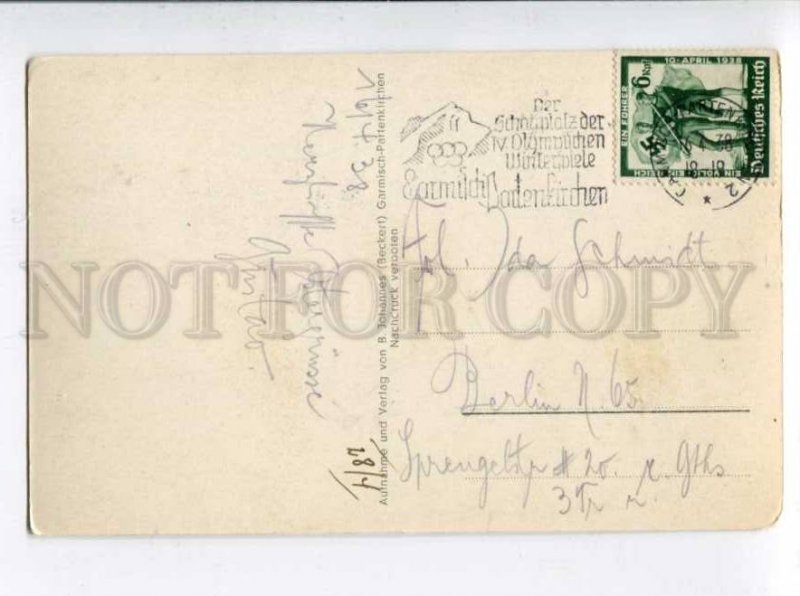 16/4. 38
Gustav.
28/4
Aufnahme und Verlag von B. Johannes (Beckert) Garmisch-Partenkirchen
Nachdruck verboten
Der
Schauplatz der
IV Olympischen
Winterspiele
Garmisch Partenkirchen
10. APRIL 1938
6 Rpf
EIN FÜHRER
EIN VOLK EIN REICH
Deutsches Reich
Frl. Ida Schmidt
Berlin N. 65.
Sprengelstr # 20. r. Gths
3 Tr r.
NOT FOR COPY